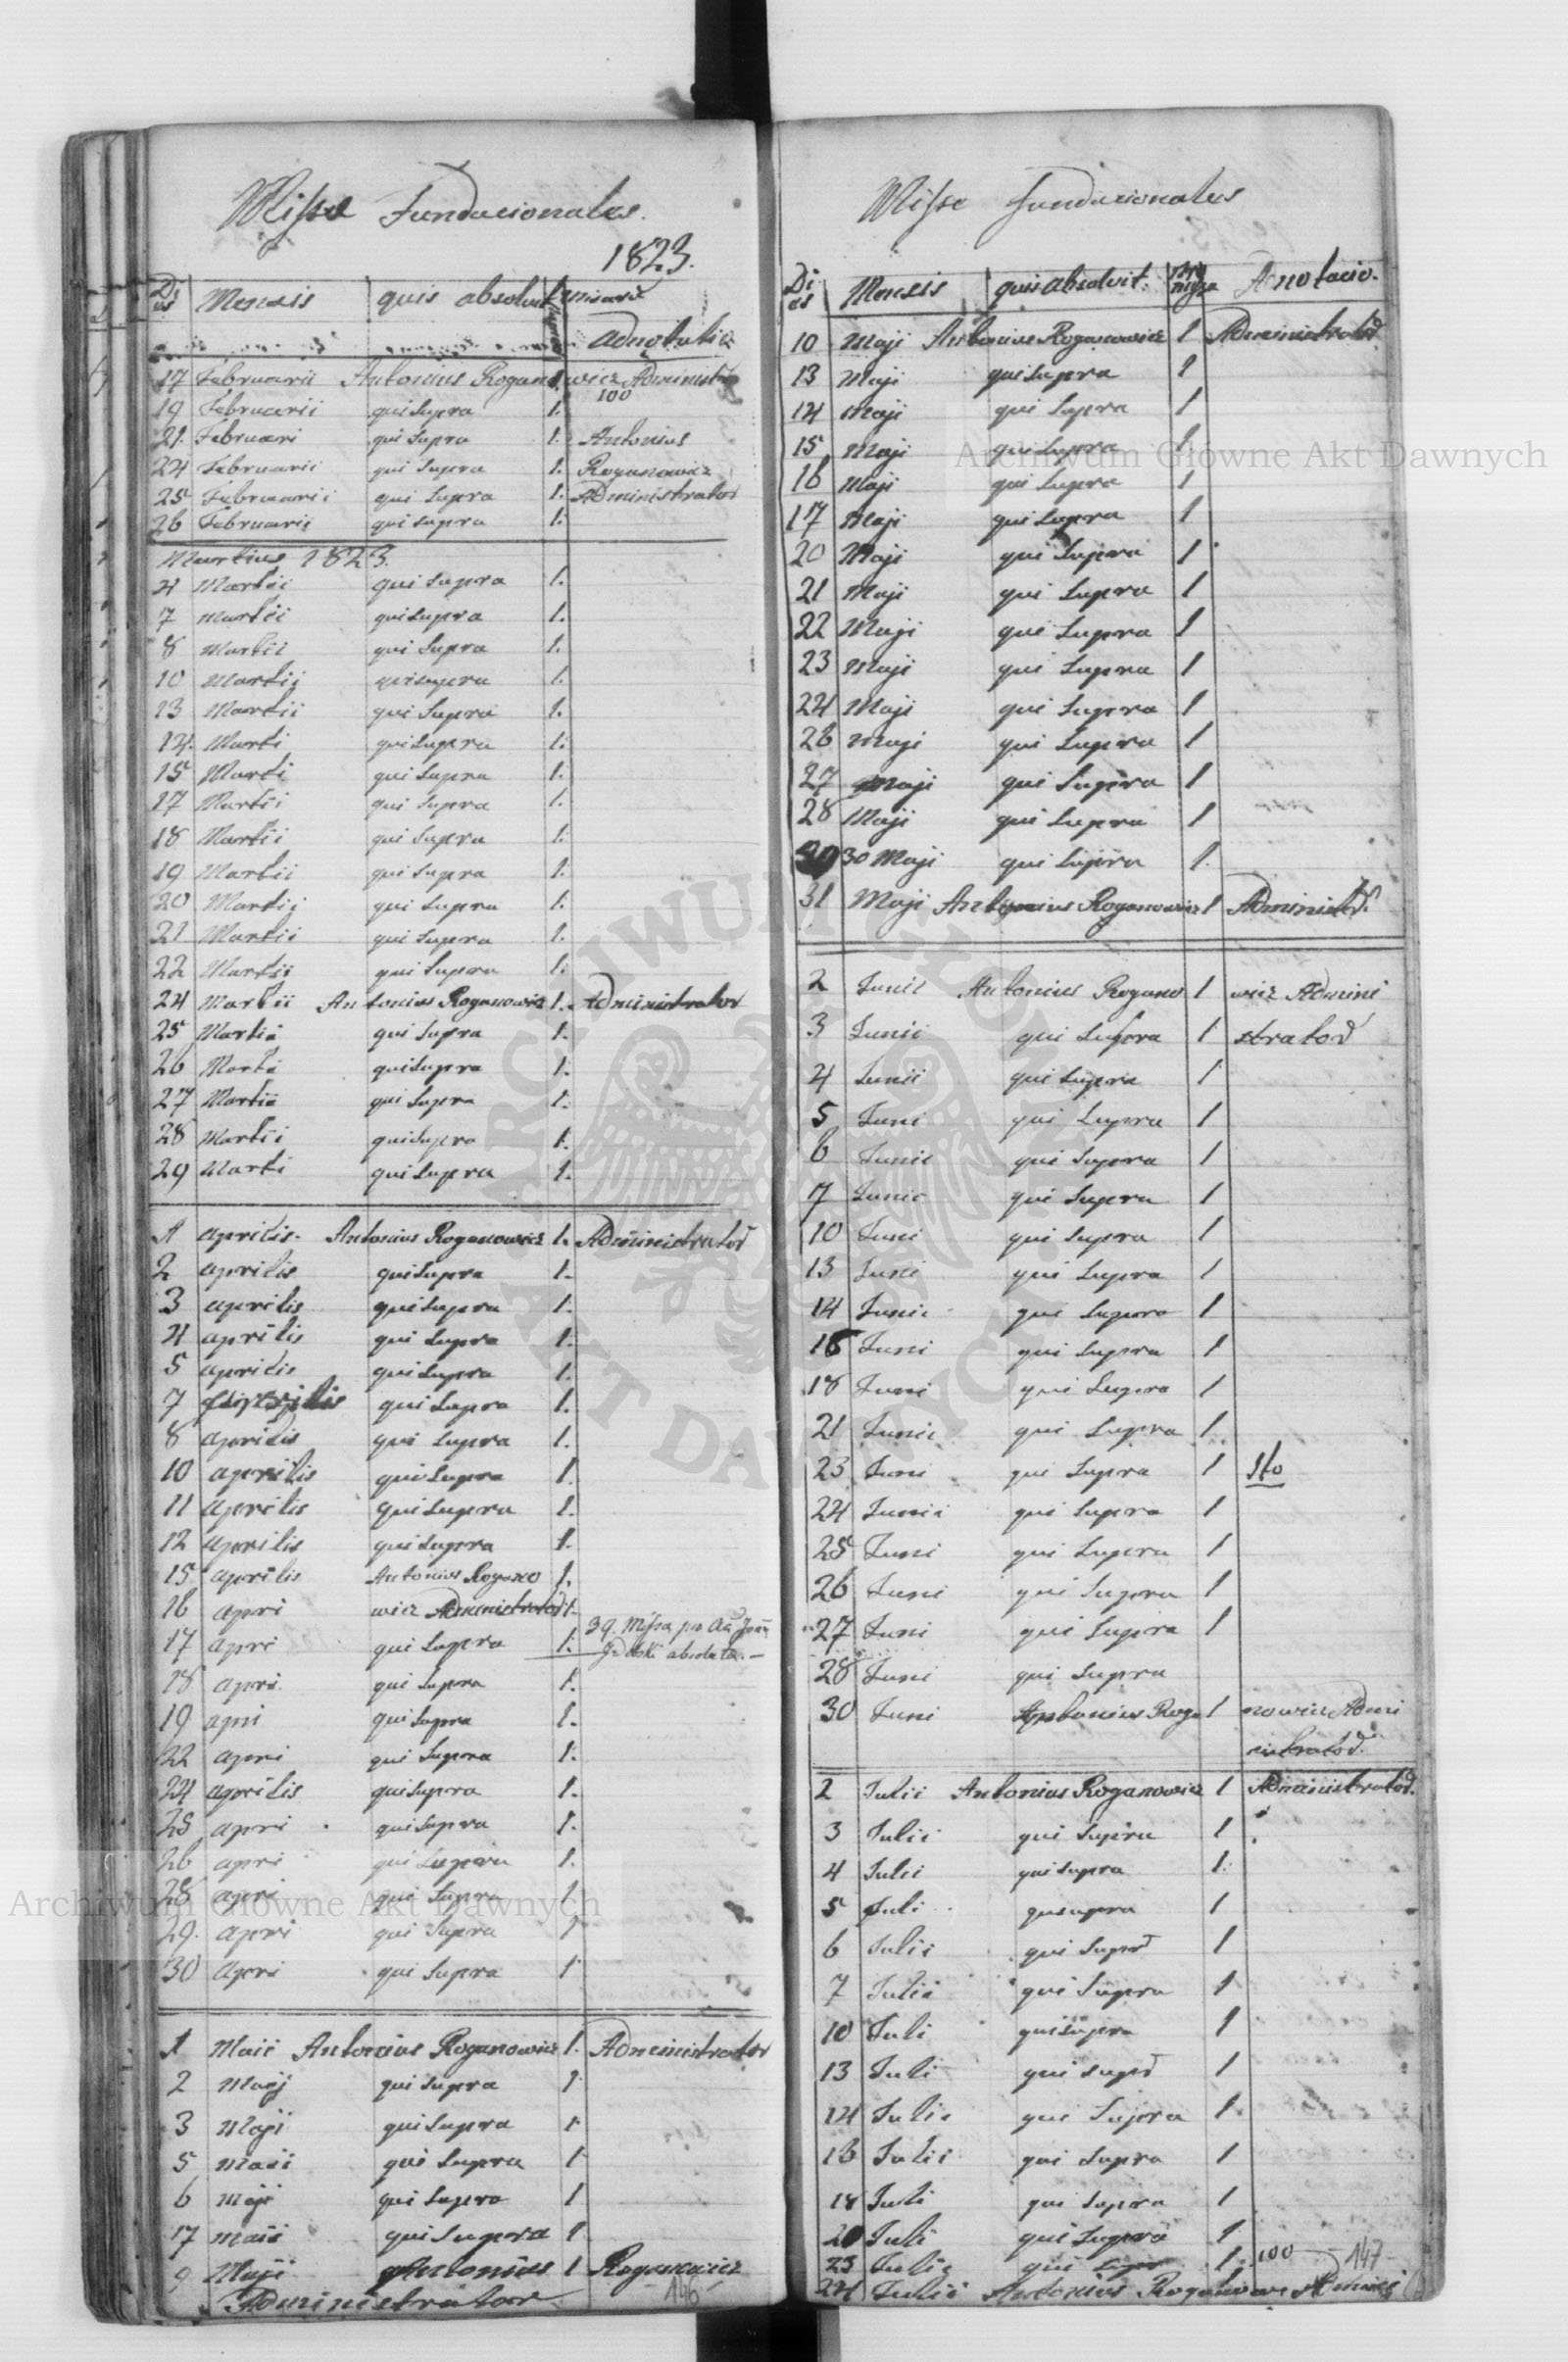 Missæ Fundacionales.
1823.
Di es Mensis quis absolvit
adnotatio
17 Februarii Antonius Roganowicz Administr
100
19 Februarii qui Supra 1.
21. Februari qui Supra 1. Antonius
24 Februarii qui Supra 1. Roganowicz
25 Februarii qui Supra 1. Administrator
26 Februarii qui supra 1.
Martius 1823.
4 Martii qui Supra 1.
7 Martii qui Supra 1.
8 Martii qui Supra 1.
10 Martij qui supra 1.
13 Martii qui Supra 1.
14. Marti qui Supra 1.
15 Marti qui Supra 1.
17 Martii qui Supra 1.
18 Martii qui Supra 1.
19 Martii qui Supra 1.
20 Martij qui Supra 1.
21 Martii qui Supra 1.
22 Martii qui Supra 1.
24 Martii Antonius Roganowicz 1. Administrator
25 Martii qui Supra 1.
26 Marti qui Supra 1.
27 Martii qui Supra 1.
28 Martii qui Supra 1.
29 Marti qui Supra 1.
1 aprilis. Antonius Roganowicz 1. Administrator
2 aprilis qui Supra 1.
3 aprilis qui Supra 1.
4 aprilis qui Supra 1.
5 aprilis qui Supra 1.
7 aprilis qui Supra 1.
8 aprilis qui Supra 1.
10 aprilis qui Supra 1.
11 aprilis qui Supra 1.
12 aprilis qui Supra 1.
15 aprilis Antonius Rogano 1.
16 apri wicz Administrator 1.
17 apri qui Supra 1. 39. Missa pro
absoluta.
18 apri qui Supra 1.
19 apri qui Supra 1.
22 apri qui Supra 1.
24 aprilis qui Supra 1.
25 apri qui Supra 1.
26 apri qui Supra 1.
28 apri qui Supra 1
29. apri qui Supra 1
30 apri qui Supra 1
1 Maii Antonius Roganowicz 1. Administrator
2 Maij qui Supra 1
3 Maji qui Supra 1
5 Maii qui Supra 1
6 Maji qui Supra 1
17 Maii qui Supra 1
9 Maji Antonius 1 Roganowicz
Administrator
146
Missæ fundacionales
Di es Mensis quis absolvit. Adnotacio.
10 Maji Antonius Roganowicz 1 Administrator
13 Maji qui Supra 1
14 Maji qui Supra 1
15 Maji qui Supra 1
16 Maji qui Supra 1
17 Maji qui Supra 1
20 Maji qui Supra 1
21 Maji qui Supra 1
22 Maji qui Supra 1
23 Maji qui Supra 1
24 Maji qui Supra 1
26 Maji qui Supra 1
27 Maji qui Supra 1
28 Maji qui Supra 1
30 Maji qui Supra 1.
31 Maji Antonius Roganowicz 1 Administ.
2 Junii Antonius Rogano 1 wicz Admini
3 Junii qui Supra 1 strator
4 Junii qui Supra 1
5 Juni qui Supra 1
6 Junii qui Supra 1
7 Junii qui Supra 1
10 Juni qui Supra 1
13 Juni qui Supra 1
14 Junii qui Supra 1
16 Juni qui Supra 1
18 Juni qui Supra 1
21 Junii qui Supra 1
23 Juni qui Supra 1
24 Junii qui Supra 1
25 Juni qui Supra 1
26 Juni qui Supra 1
27 Juni qui Supra 1
28 Juni qui Supra
30 Juni Antonius Roga 1 nowicz Admi
nistrator.
2 Julii Antonius Roganowicz 1 Administrator.
3 Julii qui Supra 1
4 Julii qui Supra 1
5 Juli qui supra 1
6 Julii qui Supra 1
7 Julii qui Supra 1
10 Juli qui Supra 1
13 Juli qui supr 1
14 Julii qui Supra 1
16 Julii qui Supra 1
18 Juli qui Supra 1
20 Juli qui Supra 1
23 Julii qui 1. 100
24 Julii Antonius
147
Archiwum Główne Akt Dawnych
Archiwum Główne Akt Dawnych
ARCHIWUM GŁÓWNE AKT DAWNYCH